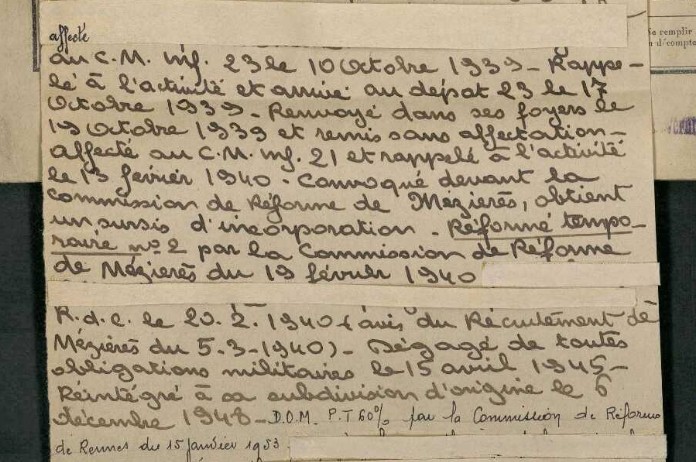 affecté
au C.M. Inf. 23 le 10 Octobre 1939 - Rappe-
lé à l'activité et arrivé au dépôt 23 le 17
Octobre 1939 - Renvoyé dans ses foyers le
19 Octobre 1939 et remis sans affectation -
Affecté au C.M. Inf. 21 et rappelé à l'activité
le 13 février 1940 - Convoqué devant la
commission de Réforme de Mézières, obtient
un sursis d'incorporation - Réformé tempo-
raire nº 2 par la Commission de Réforme
de Mézières du 19 février 1940
R.d.c. le 20.2.1940 (avis du Recrutement de
Mézières du 5-3-1940) - Dégagé de toutes
obligations militaires le 15 avril 1945 -
Réintégré à sa subdivision d'origine le 6
décembre 1948 - D.O.M. P.T 60% par la Commission de Réforme
de Rennes du 15 janvier 1953
la remplir